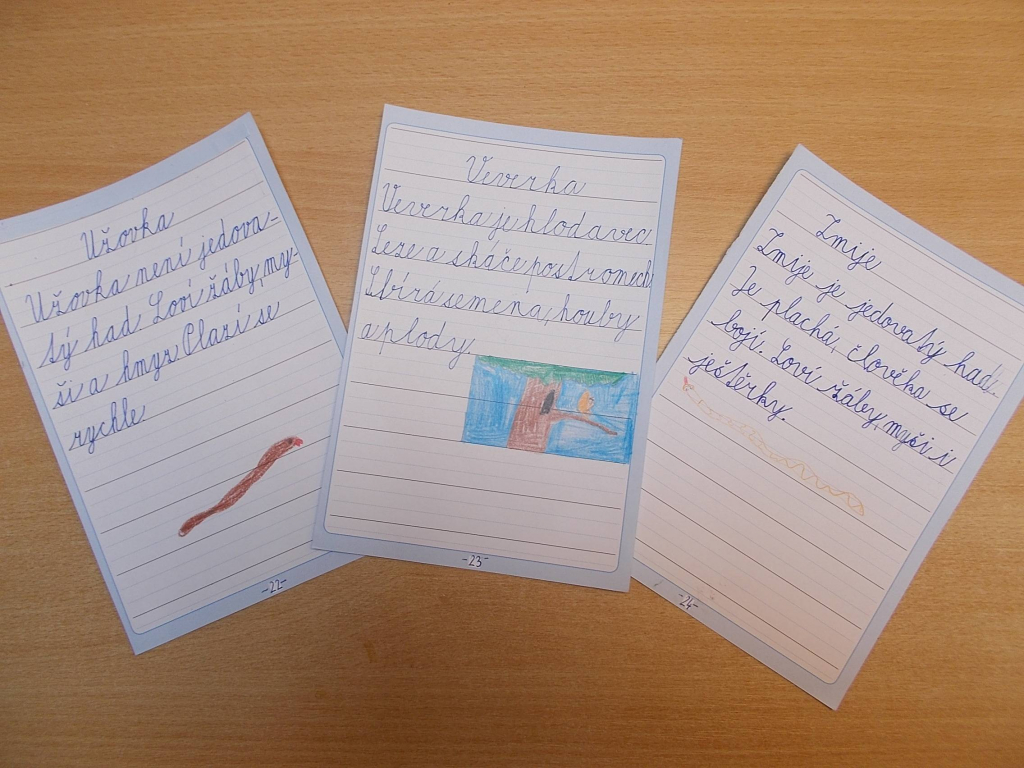 Užovka
Užovka není jedova-
tý had. Loví žáby, my-
ši a hmyz. Plazí se
rychle.
-22-
Veverka
Veverka je hlodavec.
Leze a skáče po stromech.
Sbírá semena, houby
a plody.
-23-
Zmije
Zmije je jedovatý had.
Je plachá, člověka se
bojí. Loví žáby, myši i
ještěrky.
-24-